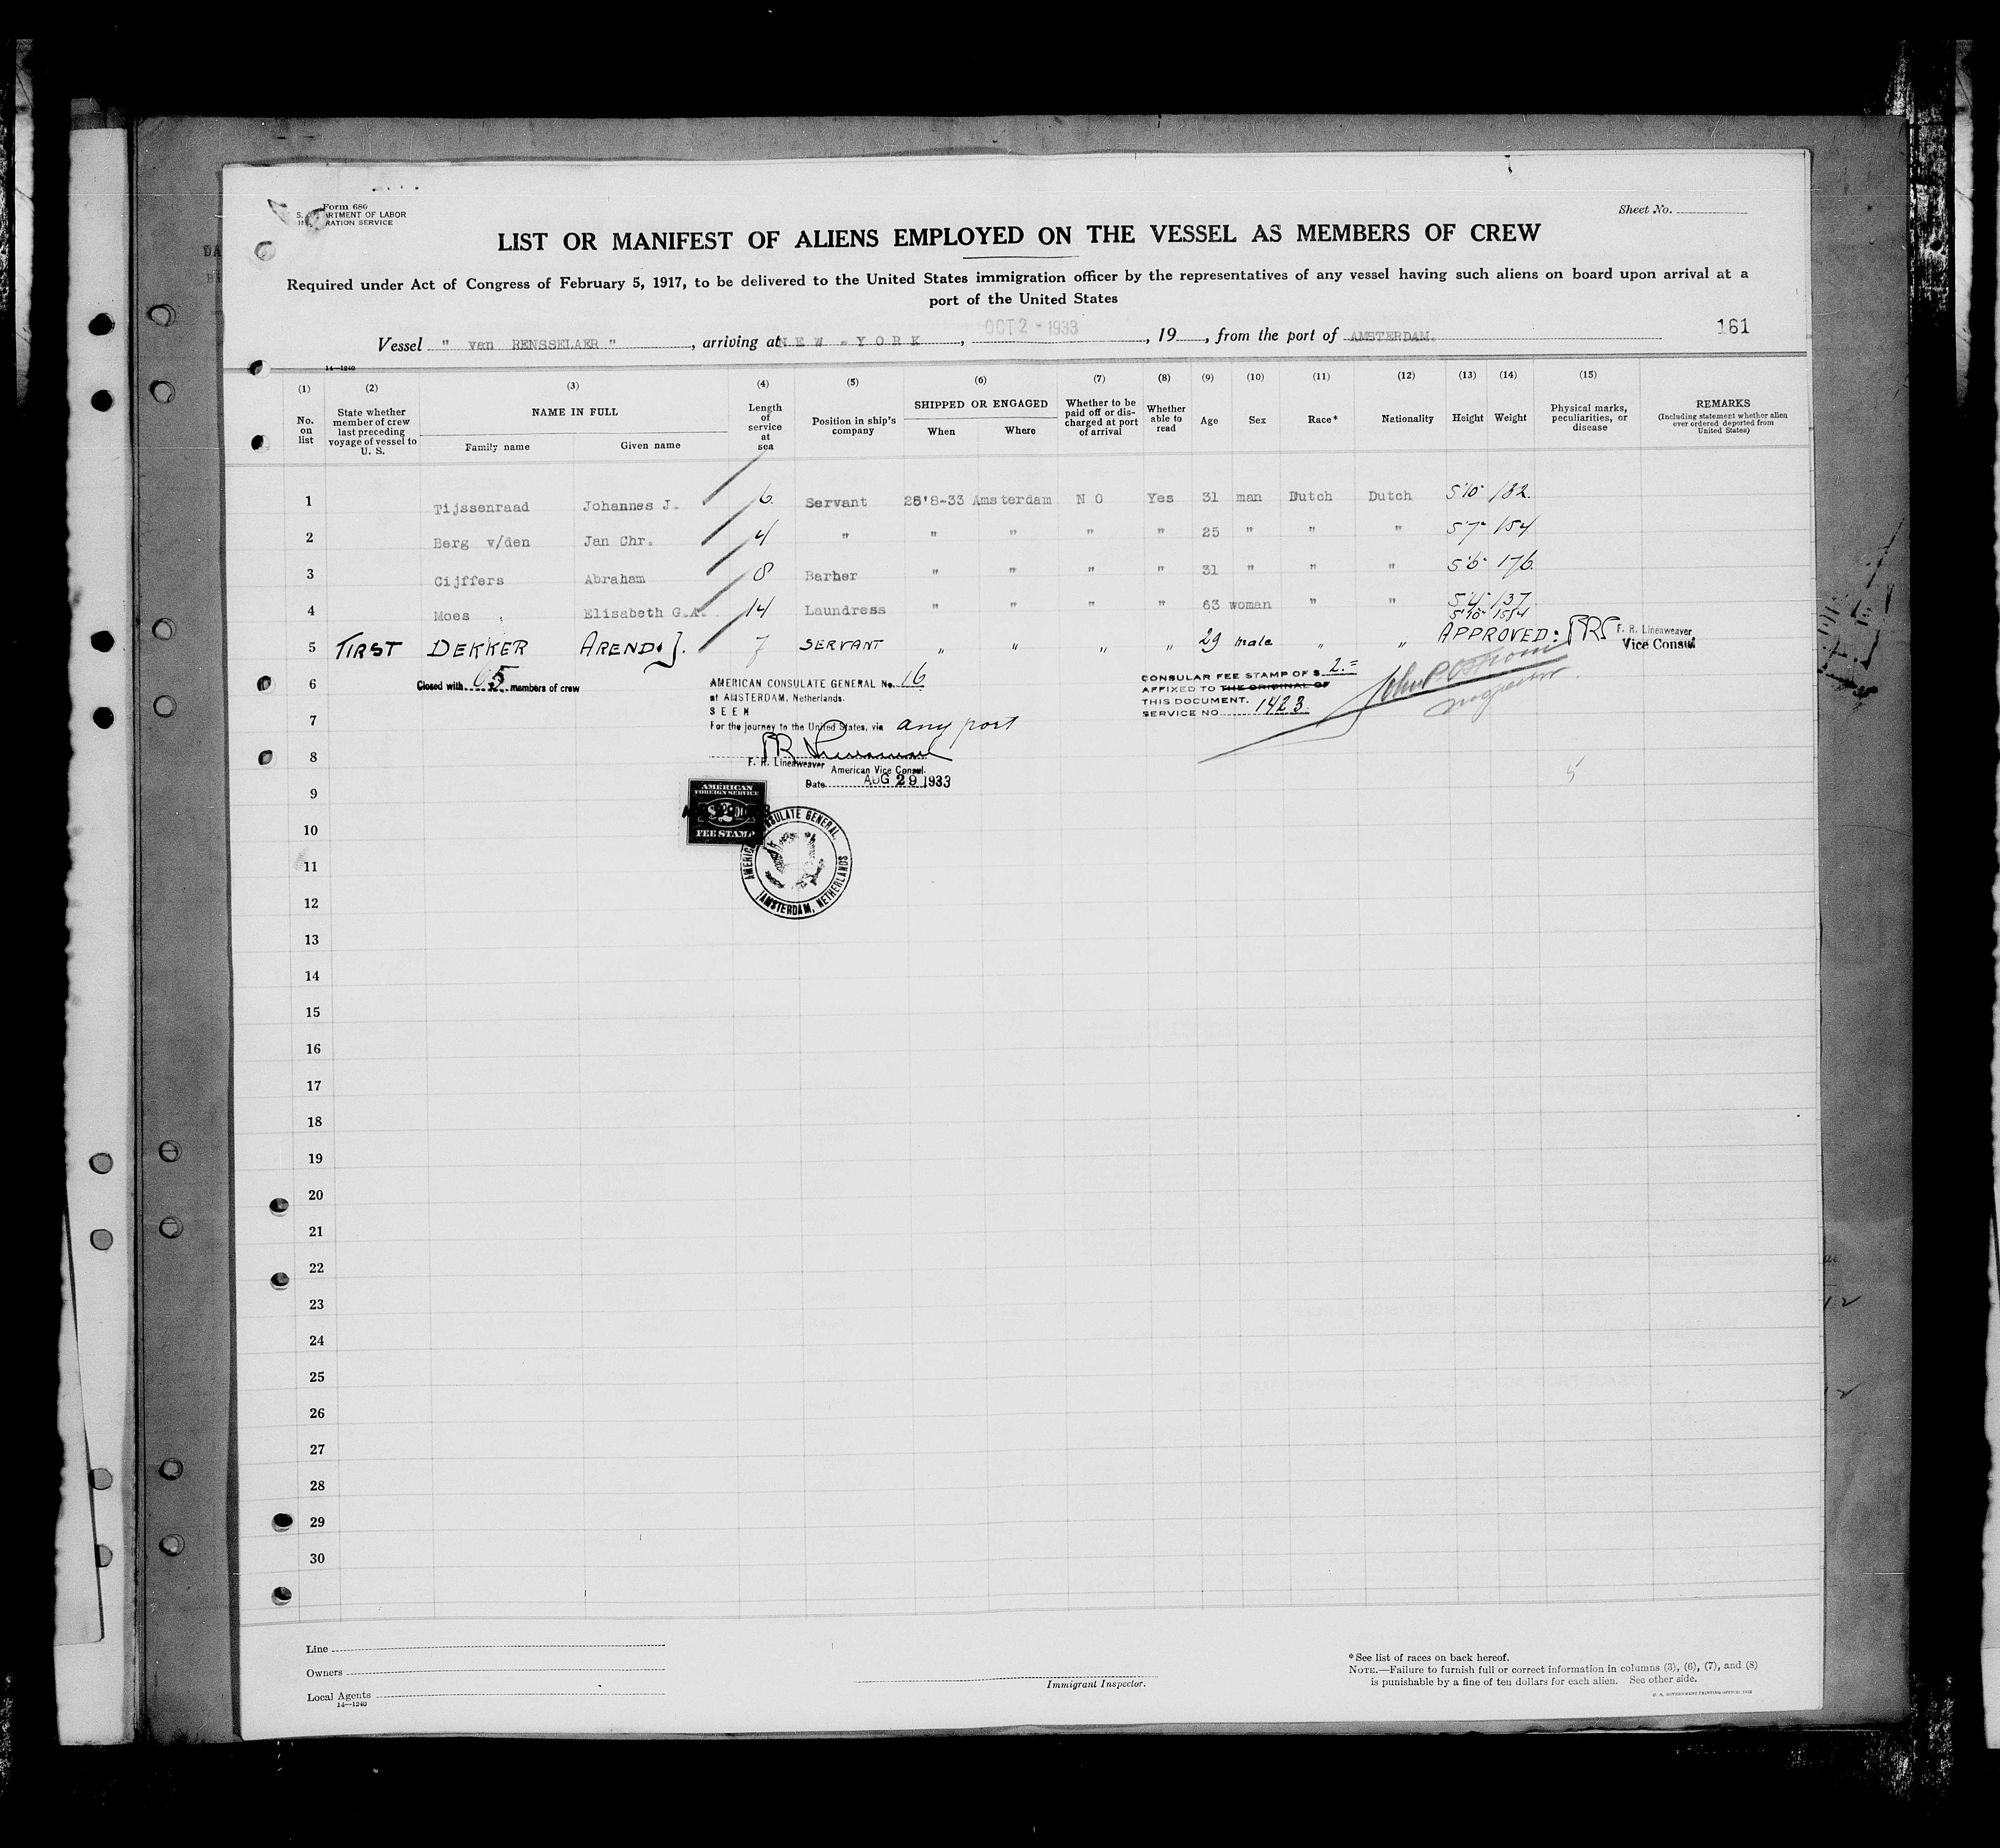 Form 686
S. DEPARTMENT OF LABOR
IMMIGRATION SERVICE
Sheet No.
LIST OR MANIFEST OF ALIENS EMPLOYED ON THE VESSEL AS MEMBERS OF CREW
Required under Act of Congress of February 5, 1917, to be delivered to the United States immigration officer by the representatives of any vessel having such aliens on board upon arrival at a
port of the United States
Vessel " van RENSSELAER ", arriving at NEW-YORK, OCT 2 - 1933, 19, from the port of AMSTERDAM. 161
14—1240
(1) (2) (3) (4) (5) (6) (7) (8) (9) (10) (11) (12) (13) (14) (15)
No. on list
State whether member of crew last preceding voyage of vessel to U. S.
NAME IN FULL
Family name Given name
Length of service at sea
Position in ship's company
SHIPPED OR ENGAGED
When Where
Whether to be paid off or discharged at port of arrival
Whether able to read
Age
Sex
Race*
Nationality
Height
Weight
Physical marks, peculiarities, or disease
REMARKS
(Including statement whether alien ever ordered deported from United States)
1 Tijssenraad Johannes J. 6. Servant 25'8-33 Amsterdam N O Yes 31 man Dutch Dutch 5'10" 182.
2 Berg v/den Jan Chr. 4 " " " " " 25 " " " 5'7" 154
3 Cijffers Abraham 8 Barber " " " " 31 " " " 5'6" 176.
4 Moes Elisabeth G.A. 14 Laundress " " " " 63 woman " " 5'4" 137
5'10" 154
5 TIRST DEKKER AREND J. 7 SERVANT " " " " 29 male " " APPROVED: F. R. Lineaweaver
Vice Consul
6 Closed with 05 members of crew
AMERICAN CONSULATE GENERAL No. 16
at AMSTERDAM, Netherlands.
SEEN
For the journey to the United States, via any port
F. R. Lineaweaver American Vice Consul.
Date AUG 29 1933
CONSULAR FEE STAMP OF $ 2.=
AFFIXED TO THE ORIGINAL OF
THIS DOCUMENT.
SERVICE NO. 1423.
Inspector.
5
AMERICAN
FOREIGN SERVICE
$2.00
FEE STAMP
AMERICAN CONSULATE GENERAL,
AMSTERDAM, NETHERLANDS
7
8
9
10
11
12
13
14
15
16
17
18
19
20
21
22
23
24
25
26
27
28
29
30
Line
Owners
Local Agents
14—1240
Immigrant Inspector.
*See list of races on back hereof.
NOTE.—Failure to furnish full or correct information in columns (3), (6), (7), and (8)
is punishable by a fine of ten dollars for each alien. See other side.